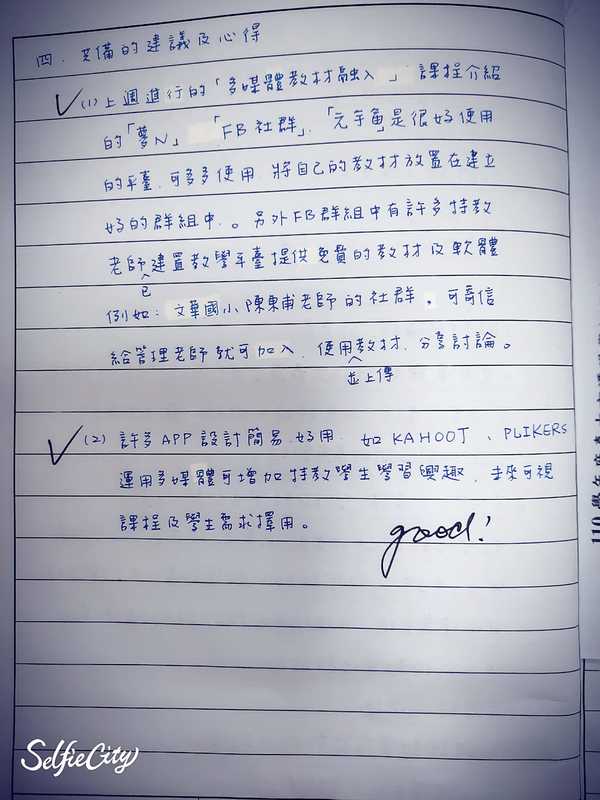 四、共備的建議及心得
(1)上週進行的「多媒體教材融入」課程介紹
的「夢N」「FB社群」、「元宇宙」是很好使用
的平臺,可多多使用,將自己的教材放置在建立
好的群組中。另外FB群組中有許多特教
老師建置教學平臺提供免費的教材及軟體
已
例如:文華國小陳東甫老師的社群,可寄信
給管理老師就可加入,使用教材、分享討論。
並上傳
(2)許多APP設計簡易、好用,如KAHOOT、PLIKERS
運用多媒體可增加特教學生學習興趣,未來可視
課程及學生需求擇用。
good!
SelfieCity
110學年度